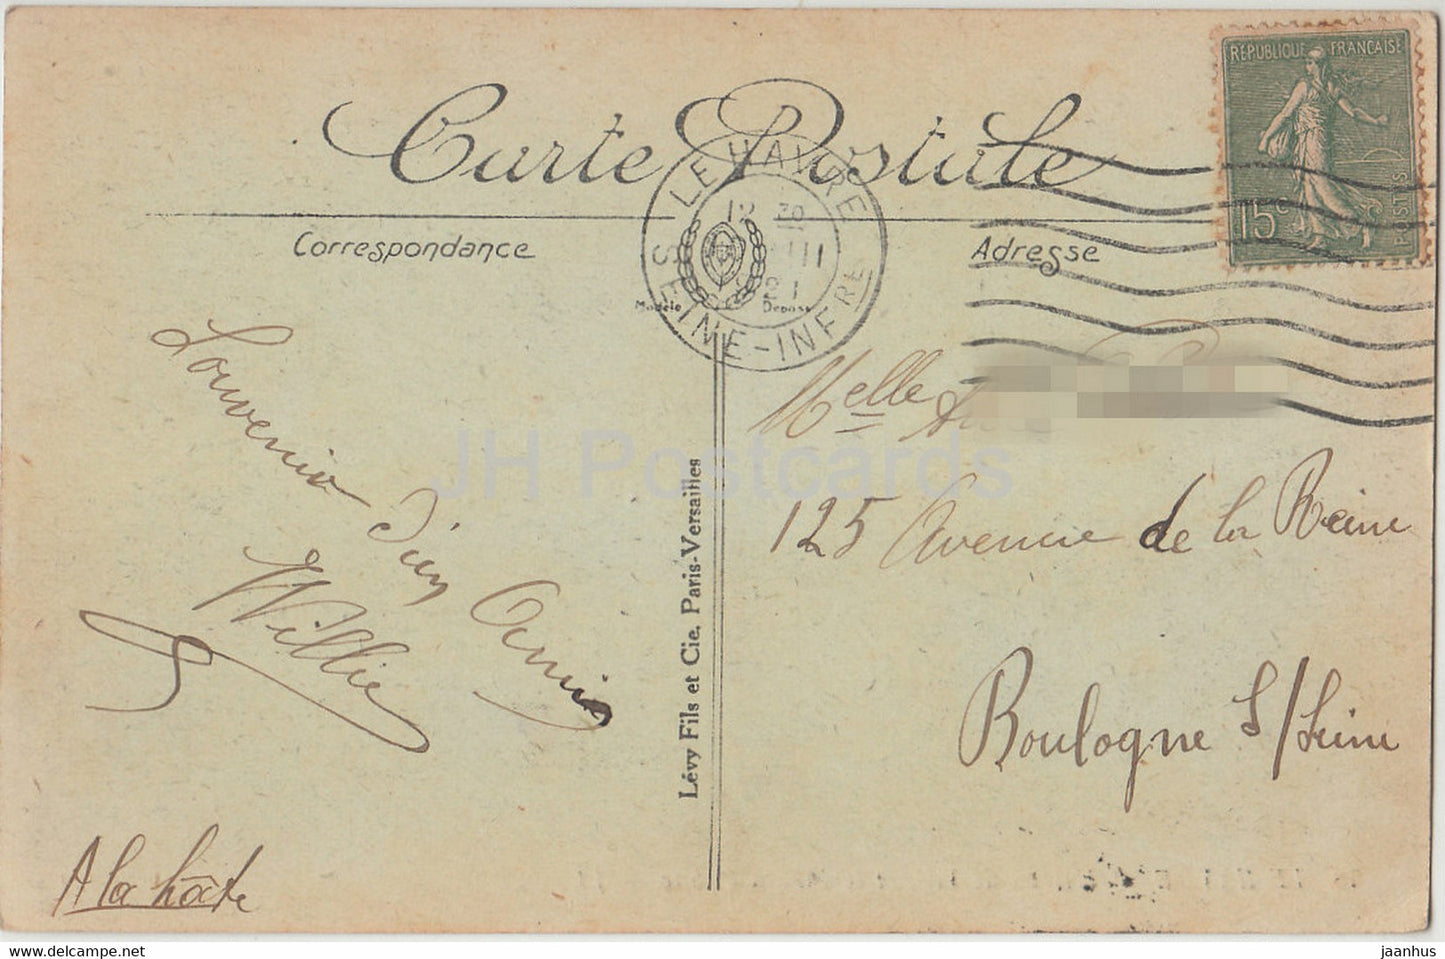 Carte Postale
RÉPUBLIQUE FRANÇAISE
15c
POSTES
LE HAVRE
12 30
III
21
SEINE-INFRE
Correspondance
Adresse
Modèle Déposé
Souvenir
d'un Ami
Willie
A la hâte
Lévy Fils et Cie, Paris-Versailles
Melle
125 Avenue de la Reine
Boulogne S/Seine
JH Postcards
https://www.delcampe.net
jaanhus